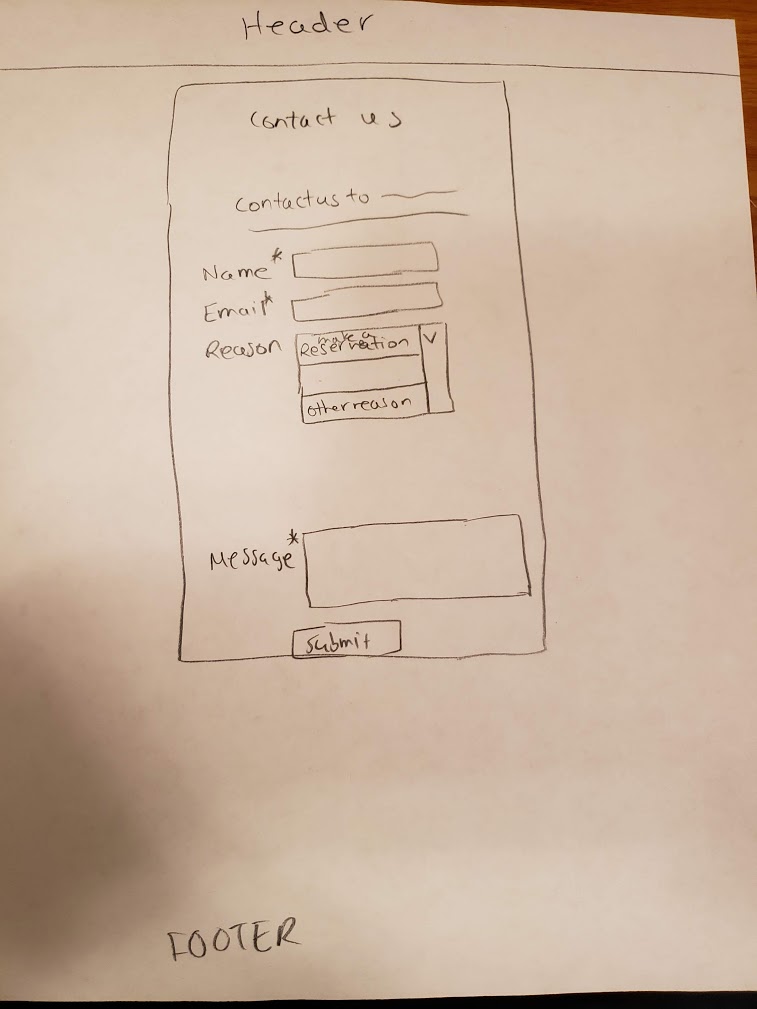 Header
Contact us
Contact us to
Name*
Email*
Reason
make a
Reservation
V
Other reason
Message*
Submit
FOOTER